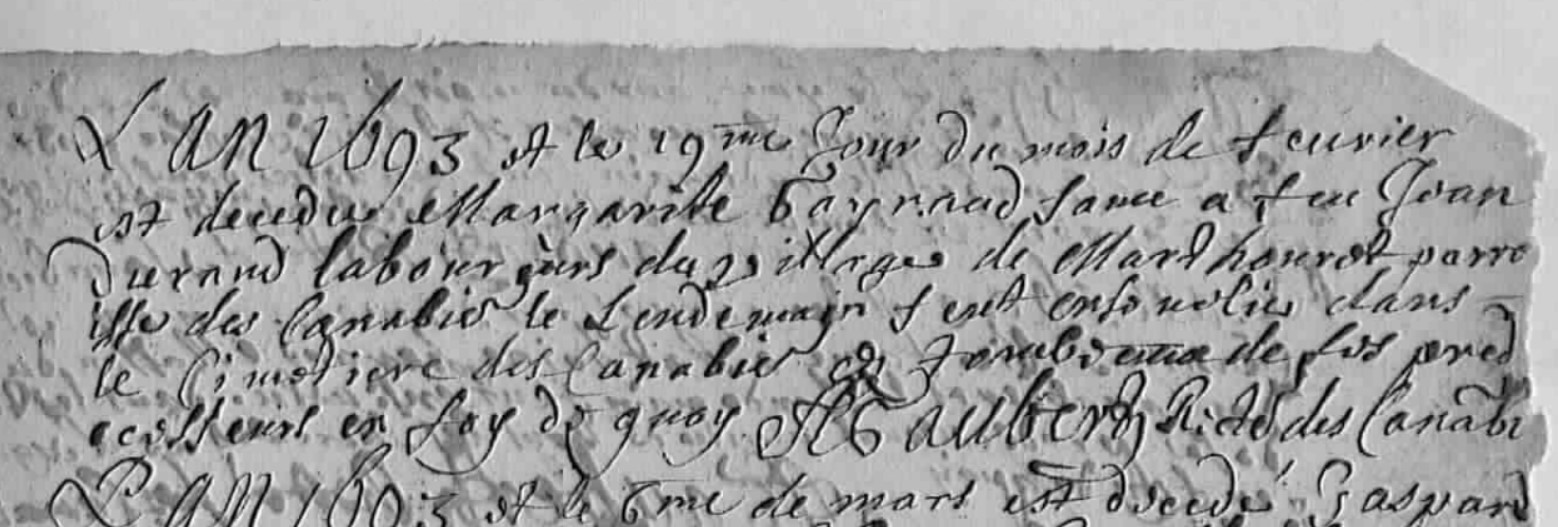 L'AN 1693 et le 19me Jour du mois de feurier
est decedee Margarite Gayraud fame a feu Jean
Durand laboureurs du village de Marthouret parro
isse des Canabie le Lendemain feut enseuelie dans
le Cimetiere des Canabie et Tombeau de ses pred
ecesseurs en foy de quoy Aubert des Canabi
L'AN 1693 et le 6me de mars est decedé Gaspard